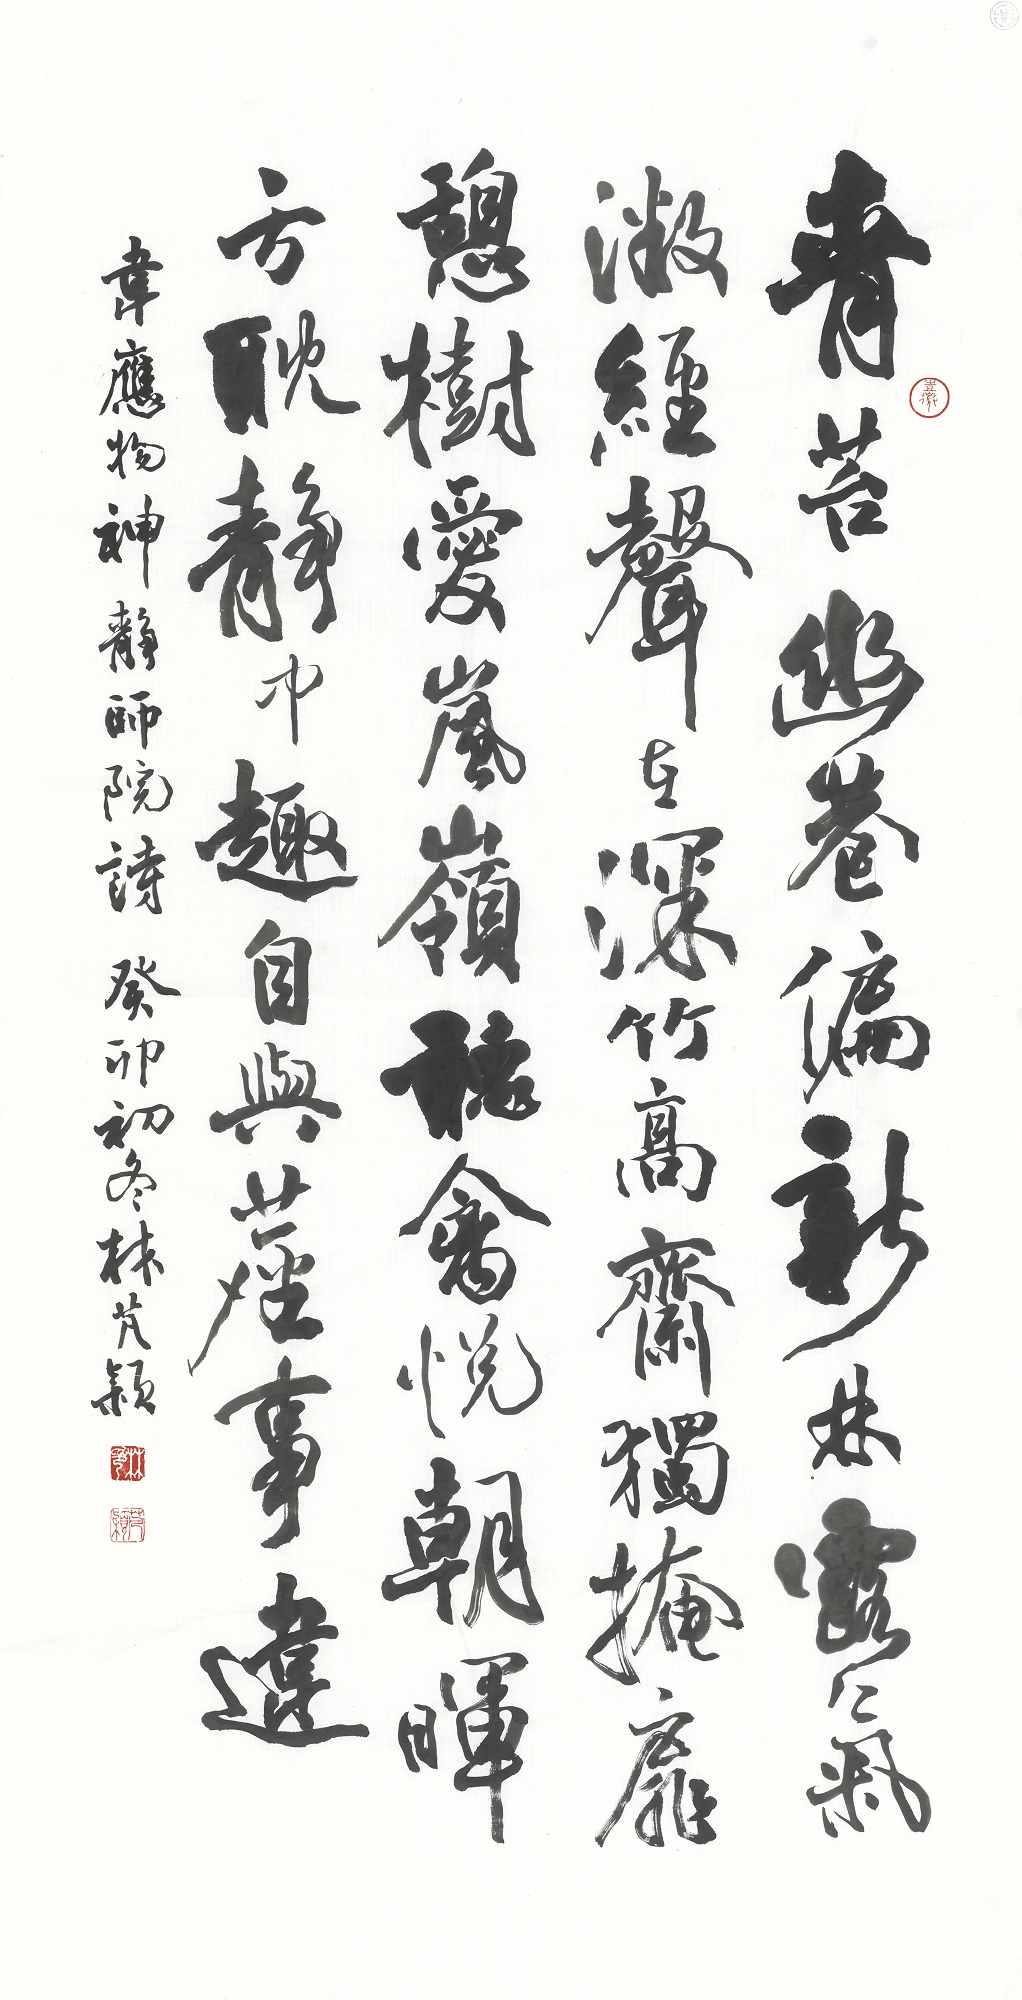 青苔幽巷徧新林露气氣
澂經聲在深竹高齋獨掩扉
憩樹愛嵐嶺聽禽悅朝暉
方耽靜中趣自與塵事違
韋應物神靜師院詩 癸卯初冬林芃穎